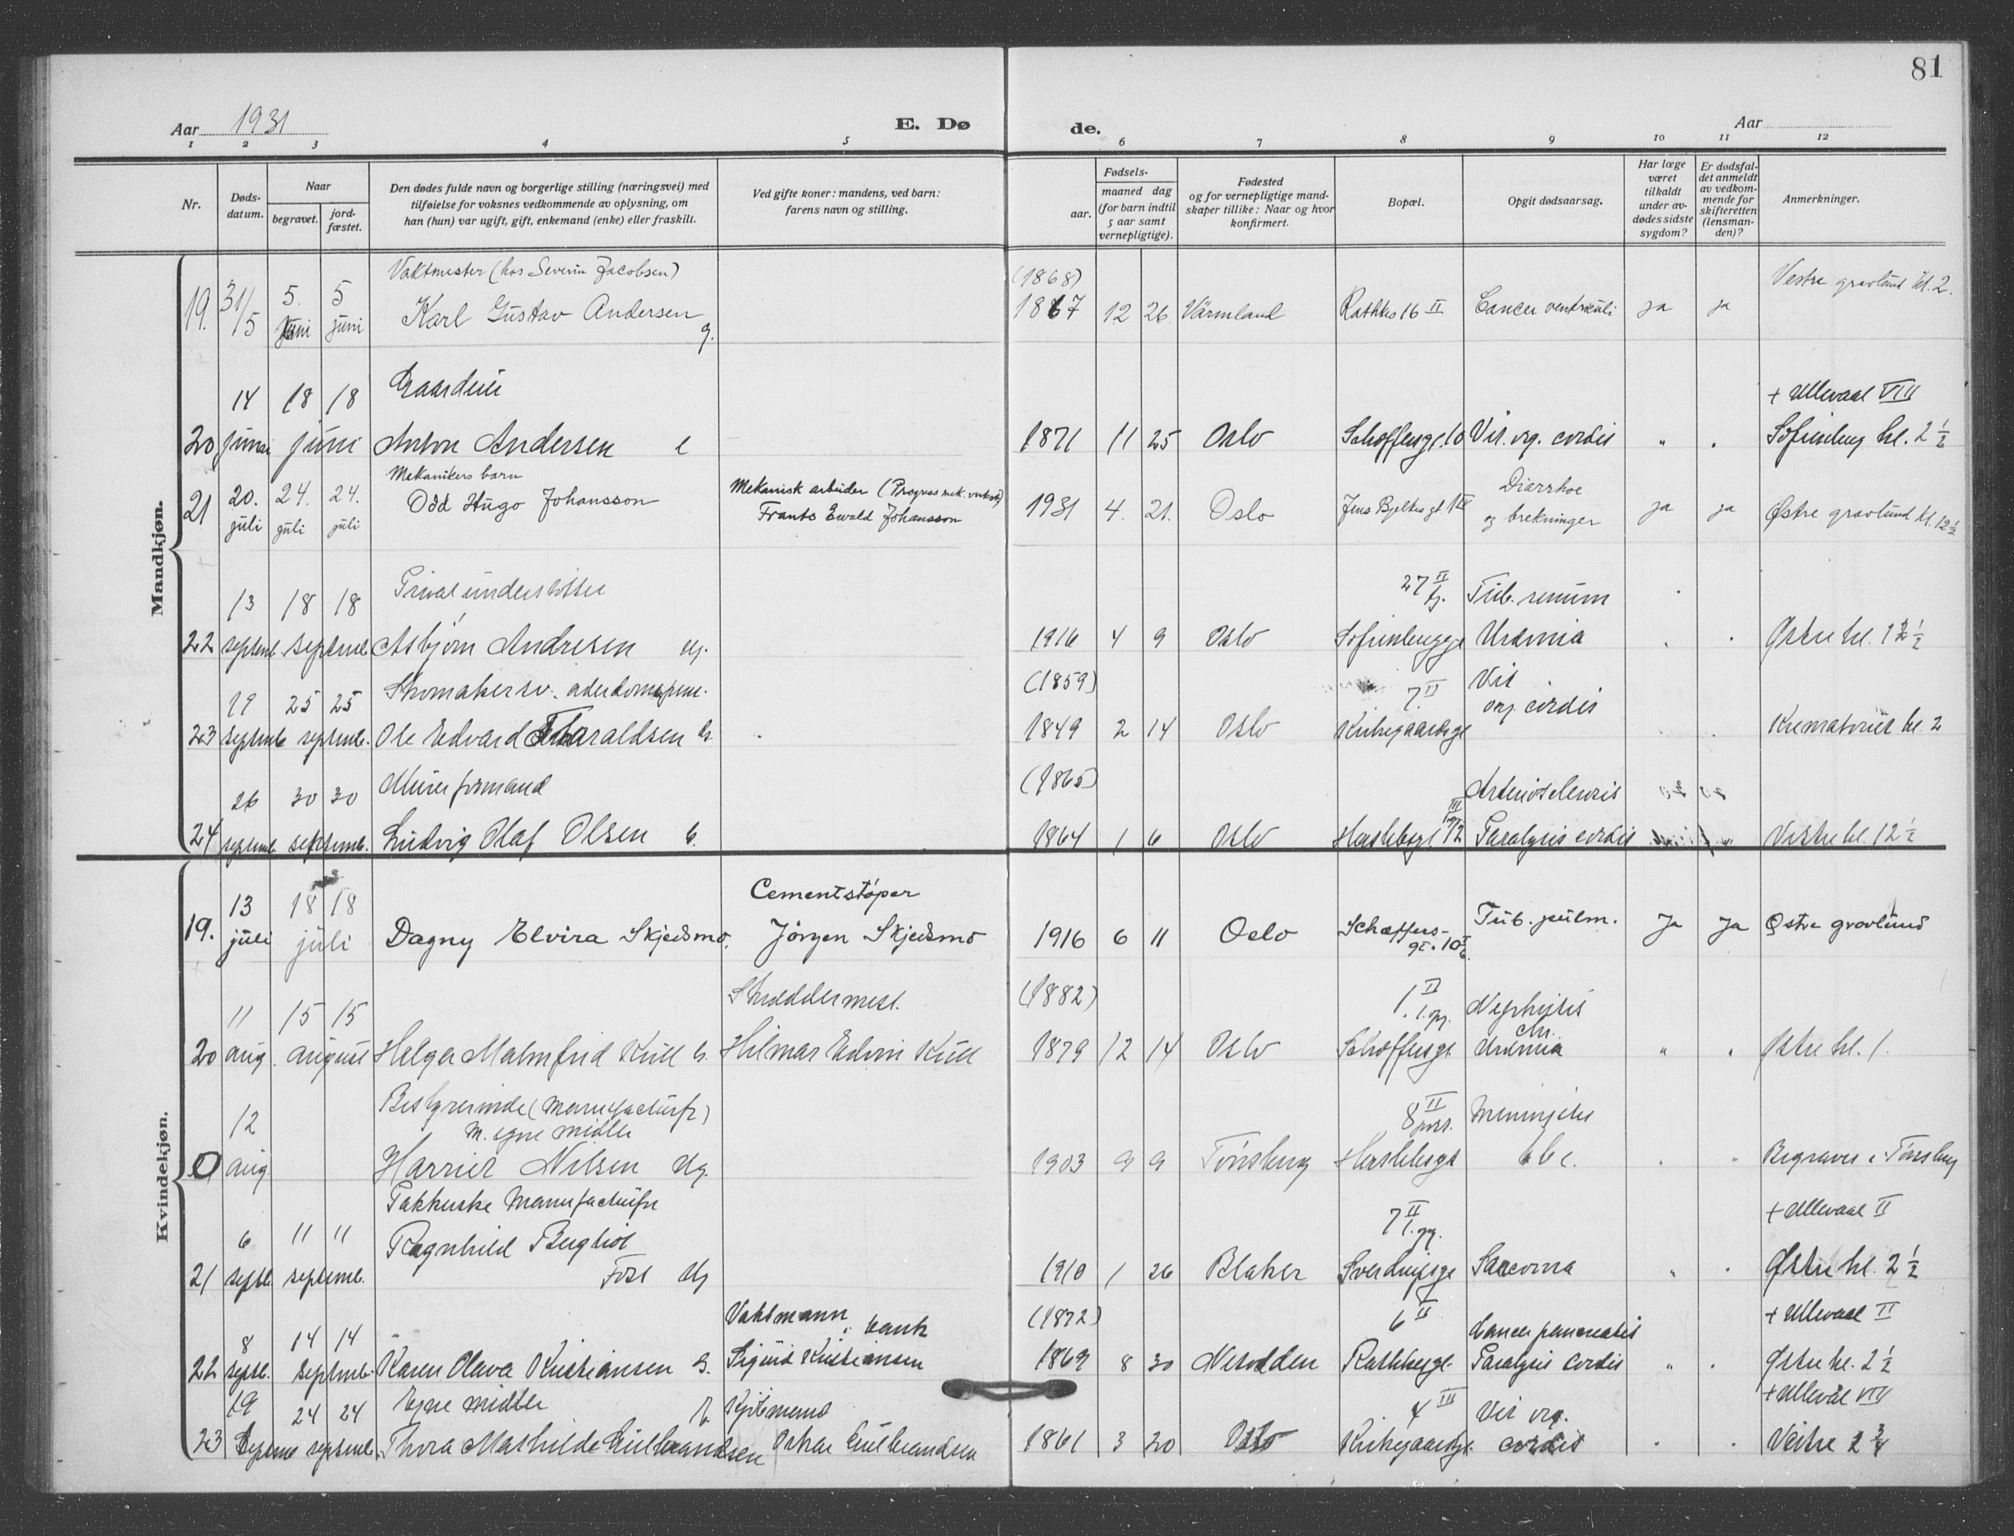 81
Aar 1931
E. Dø
de.
Aar
1 2 3 4 5 6 7 8 9 10 11 12
Nr.
Døds-
datum.
Naar
begravet.
jord-
fæstet.
Den dødes fulde navn og borgerlige stilling (næringsvei) med
tilføielse for voksnes vedkommende av oplysning, om
han (hun) var ugift, gift, enkemand (enke) eller fraskilt.
Ved gifte koner: mandens, ved barn:
farens navn og stilling.
Fødsels-
aar.
maaned dag
(for barn indtil
5 aar samt
vernepligtige).
Fødested
og for vernepligtige mand-
skaper tillike: Naar og hvor
konfirmert.
Bopæl.
Opgit dødsaarsag.
Har læge
været
tilkaldt
under av-
dødes sidste
sygdom?
Er dødsfal-
det anmeldt
av vedkom-
mende for
skifteretten
(lensman-
den)?
Anmerkninger.
Mandkjøn.
Vaktmester (hos Severin Jacobsen) (1868) Vestre gravlund kl. 2.
19. 31/5 5. juni 5 juni Karl Gustav Andersen g. 1867 12 26. Värmland Rathkes 16 II Cancer ventriculi ja ja
14 18 18 Gaardeier + Ullevaal VIII
20 juni juni Anton Andersen e 1871 11 25 Oslo Schoffersgt. 10 Vit. org. cordis " . Sofienberg kl. 2 1/2
Mekanikers barn
21 20. juli 24. juli 24. juli Odd Hugo Johansson Mekanisk arbeider (Progress mek. verksted)
Frants Ewald Johansson 1931 4. 21. Oslo Jens Bjelkes gt. 1 III Diarrhoe
og brekninger ja ja Østre gravlund kl. 12 1/2
13 18 18 Privat understøttet 27 II Tub. renum
22 septemb. septemb. Asbjørn Andresen ug. 1916 4 9 Oslo Sofienberggt Urämia . . Østre kl. 12 1/2
19 25 25 Skomakersv. alderdomspens. (1859) 7. II Vit
23 septemb septemb. Ole Edvard Tharaldsen G. 1849 2 14 Oslo Kirkegaardsgt org. cordis . . Krematoriet kl. 2
26 30 30 Murerformand (1865) Arteriosclerosis
24 septemb. septemb. Ludvig Olaf Olsen G. 1864 1 6 Oslo Herslebsgt 12 III Paralysis cordis Vestre kl. 12 1/2
Kvindekjøn.
13 18 18 Cementstøper
19. juli juli Dagny Elvira Skjedsmo. Jørgen Skjedsmo 1916 6 11 Oslo Schæffers-
gt. 10 Tub. pulm. Ja Ja Østre gravlund
11 15 15 Skræddermest. (1882) 1. II Nephritis
chr.
20 aug. august Helga Malmfrid Kull G. Hilmar Edvin Kull 1879 12 14 Oslo Schoffersgt. Urämia " . Østre kl. 1.
12 Bestyrerinde (Manufacturfr)
M. egne midler 8 II Meningitis
0 aug. Harriet Nilsen Ug. 1903 9 9 Tønsberg Herslebsgt tbc. . . Begraves i Tønsberg
Pakkerske Manufacturfr + Ullevaal II
6 11 11 Ragnhild Bergliot 7 II
21 septb. septemb. Foss Ug 1910 1 26 Blaker Sverdrupsgt Sarcoma " . Østre kl. 2 1/2
8 14 14 Vaktmann i bank (1872) 6 II Cancer pancreatis + Ullevaal II
22 septb. septemb. Karen Olava Kristiansen G. Sigurd Kristiansen 1869 8 30 Nesodden Rathkesgt. Paralysis cordis " . Østre kl. 2 1/2
19 24 24 Egne midler E Kjøbmand 4 III Vit org. + Ullevål VIII
23 Septemb septemb. Thora Mathilde Gulbrandsen Oskar Gulbrandsen 1861 3 20 Oslo Kirkegaardsgt. cordis . . Vestre 2 3/4